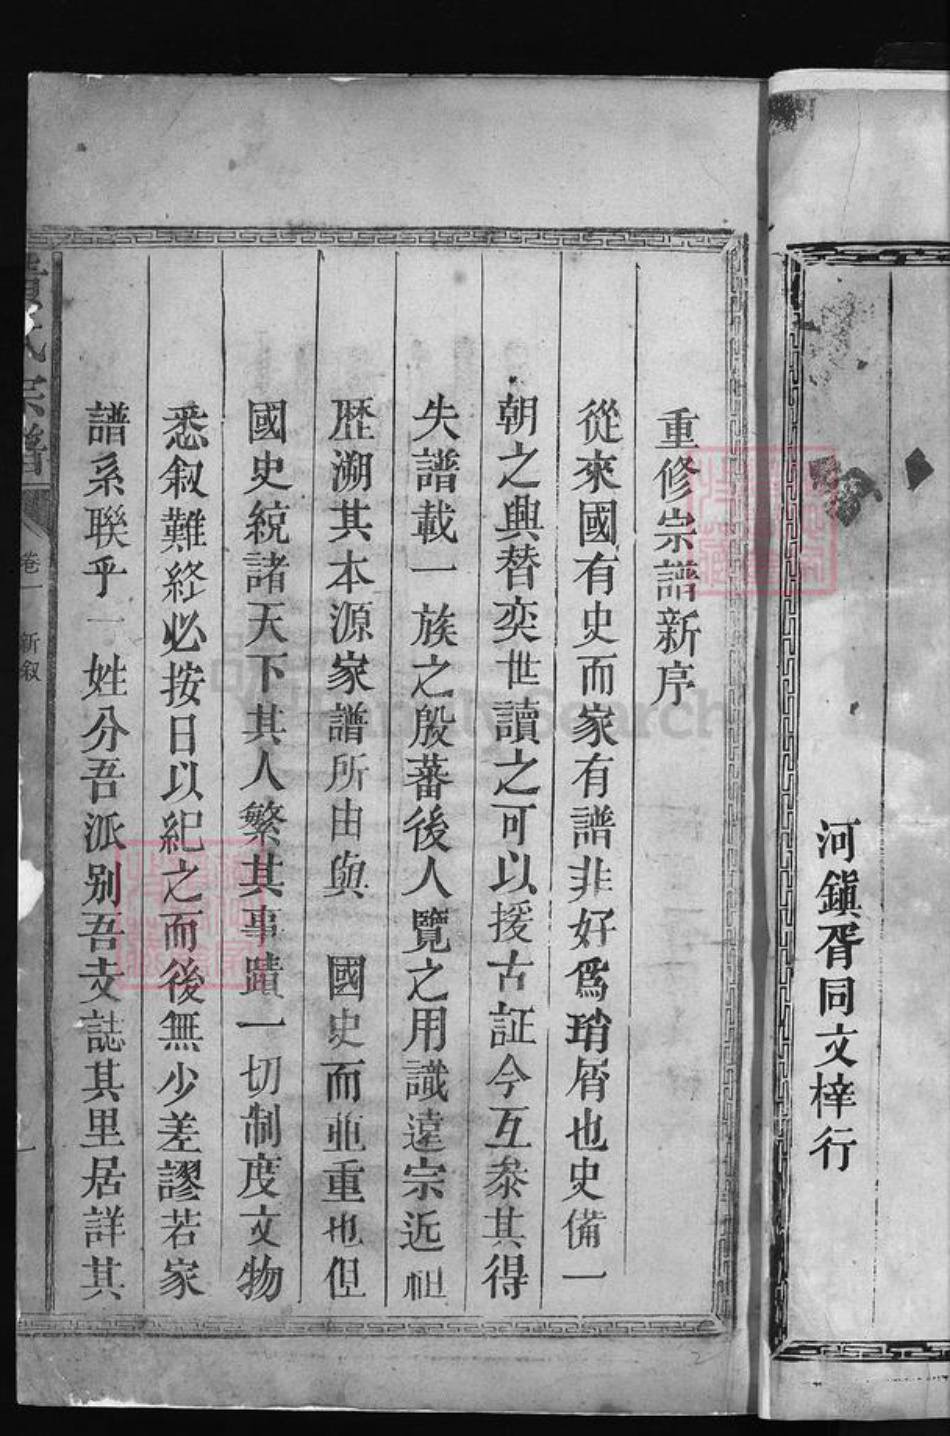 河鎮胥同文梓行
重修宗譜新序
從來國有史而家有譜非好爲瑣屑也史備一
朝之興替奕世讀之可以援古証今互叅其得
失譜載一族之殷蕃後人覽之用識遠宗近祖
歴溯其本源家譜所由與 國史而並重也但
國史統諸天下其人繁其事蹟一切制度文物
悉叙難終必按日以紀之而後無少差謬若家
譜系聯乎一姓分吾派别吾支誌其里居詳其
氏宗譜 卷一 新叙 一
FamilySearch